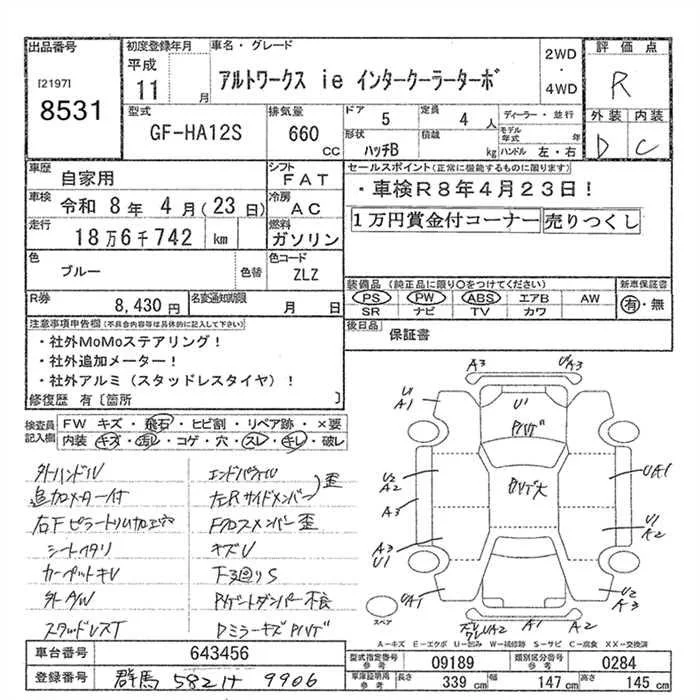 出品番号
[2197]
8531
初度登録年月
平成
11 月
車名・グレード
アルトワークス ie インタークーラーターボ
2WD
・
4WD
評価点
R
外装 内装
D C
型式
GF-HA12S
排気量
660 cc
ドア 5
定員 4 人
形状 ハッチB
積載 kg
ディーラー・並行
モデル年式 年
ハンドル 左・右
車歴 自家用
シフト FAT
車検 令和 8年 4月(23日)
冷房 AC
走行 18万6千742 km
燃料 ガソリン
色 ブルー 色替
色コード ZLZ
R券 8,430円
名変通知期限 月 日
セールスポイント(正常に機能するものに限ります)
・車検R8年4月23日!
1万円賞金付コーナー 売りつくし
装備品(純正品に限り○をつけてください)
PS PW ABS エアB AW
SR ナビ TV カワ
新車保証書
有・無
後日品 保証書
注意事項申告欄(不具合内容等は具体的に記入して下さい)
・社外MoMoステアリング!
・社外追加メーター!
・社外アルミ(スタッドレスタイヤ)!
修復歴 有〔箇所 〕
検査員記入欄
FW キズ・飛石・ヒビ割・リペア跡・×要
内装 キズ・汚レ・コゲ・穴・スレ・キレ・破レ
外ハンドル
追加メーター付
右Fピラートリム加工穴
シートヘタリ
カーペットキレ
外A/W
スタッドレスT
エンドパネル
左右Rサイドメンバー 歪
Fクロスメンバー歪
キズU
下廻りS
Rゲートダンパー不良
DミラーキズPIレゲ
A3
U'A3
U1
A1
U'
U2
A2
A3
A3
U1
UA1
U1
A2
UA1
U2
A3
UA2
A1
A2
スペア
A=キズ E=エクボ U=凹み W=補修跡 S=サビ C=腐食 XX=交換済
車台番号 643456
登録番号 群馬 582 ハ 9906
型式指定番号 参考 09189
類別区分番号 参考 0284
車庫証明用 参考 長さ 339 cm 幅 147 cm 高さ 145 cm